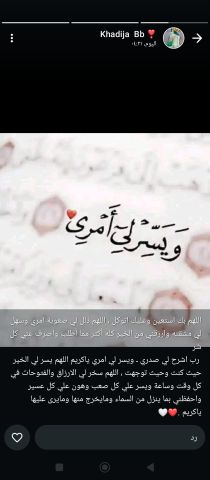 Khadija Bb ❣
اليوم، ٠٤:٣١
وَيَسِّرْ لِي أَمْرِي
اللهم بك استعين وعليك اتوكل ، اللهم ذلل لي صعوبة امري وسهل
لي مشقته وارزقني من الخير كله أكثر مما أطلب واصرف عني كل
شر
رب اشرح لي صدري .. ويسر لي امري ياكريم اللهم يسر لي الخير
حيث كنت وحيث توجهت ، اللهم سخر لي الارزاق والفتوحات في
كل وقت وساعة ويسر علي كل صعب وهون علي كل عسير
واحفظني بما ينزل من السماء ومايخرج منها ومايرى عليها
ياكريم .🤍❤️
رد